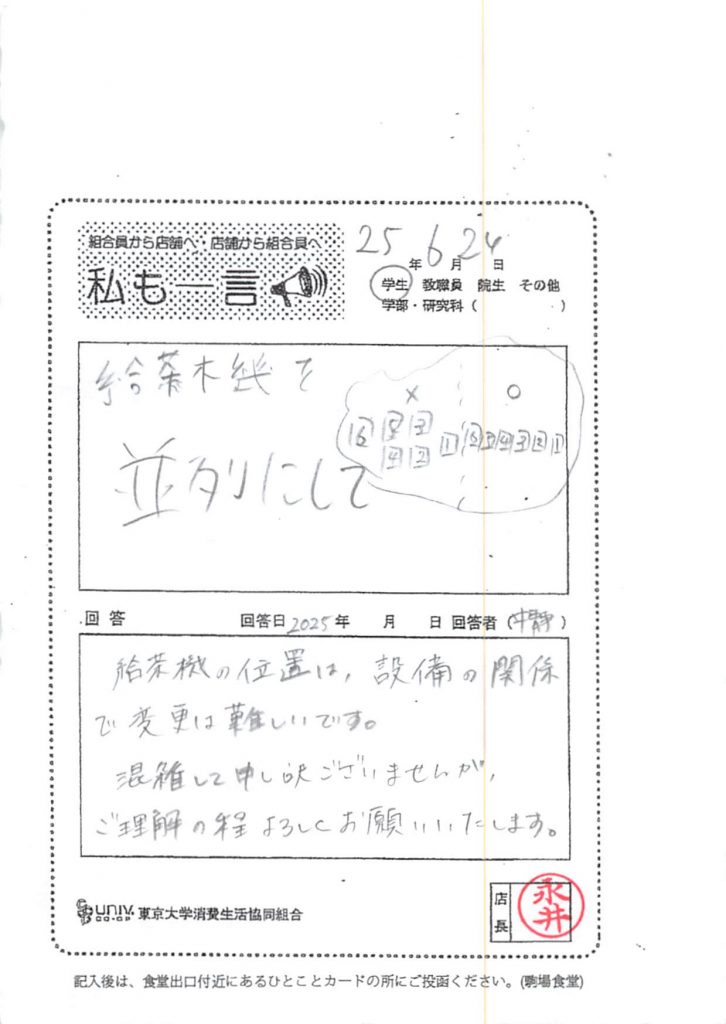 組合員から店舗へ・店舗から組合員へ
私も一言
25年 6月 24日
学生 教職員 院生 その他
学部・研究科( )
給茶機を
並列にして
× ○
6 5 3
4 2 1 6 5 4 3 2 1
回答 回答日 2025年 月 日 回答者(中静)
給茶機の位置は、設備の関係
で変更は難しいです。
混雑して申し訳ございませんが、
ご理解の程よろしくお願いいたします。
UNIV. CO-OP 東京大学消費生活協同組合
店長 永井
記入後は、食堂出口付近にあるひとことカードの所にご投函ください。(駒場食堂)